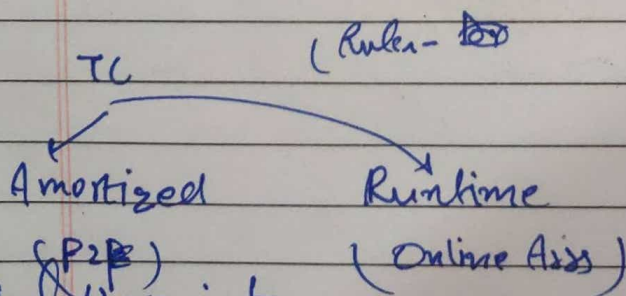 (Ruler-
TC
Amortized Runtime
(P2P) (Online Aiss)